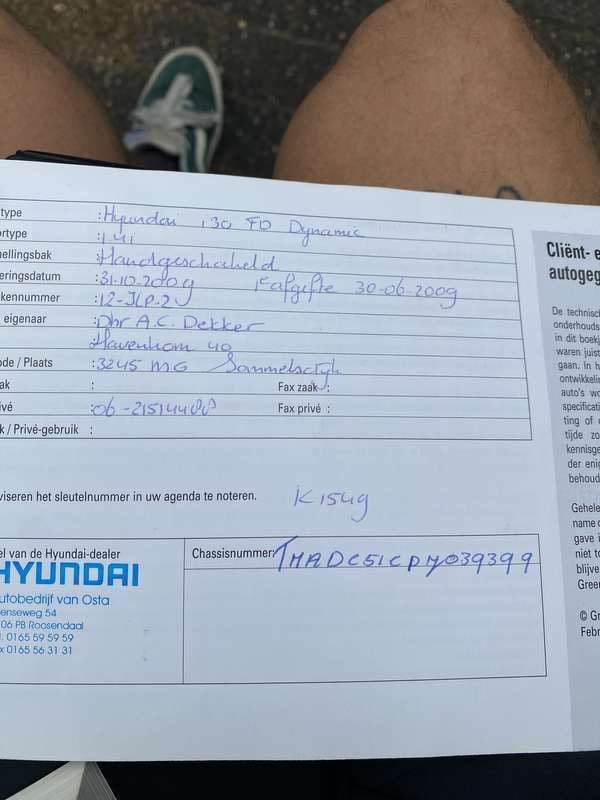 type :Hyundai i30 FD Dynamic
ortype :1.4i
nellingsbak :Handgeschakeld
eringsdatum :31-10-2009 1e afgifte 30-06-2009
kennummer :12-JLP-2
eigenaar :Dhr A.C. Dekker
Havenhom 40
ode / Plaats :3245 MG Sommelsdijk
ak : Fax zaak :
ivé :06-21514488 Fax privé :
k / Privé-gebruik :
viseren het sleutelnummer in uw agenda te noteren. K1549
el van de Hyundai-dealer
HYUNDAI
utobedrijf van Osta
enseweg 54
06 PB Roosendaal
l. 0165 59 59 59
x 0165 56 31 31
Chassisnummer: TMADC51CPMJ039399
Cliënt- e
autogeg
De technisch
onderhouds
in dit boekj
waren juist
gaan. In h
ontwikkelin
auto's wo
specificati
ting of
tijde zo
kennisge
der enig
behoud
Gehele
name o
gave i
niet to
blijve
Green
© Gr
Febr